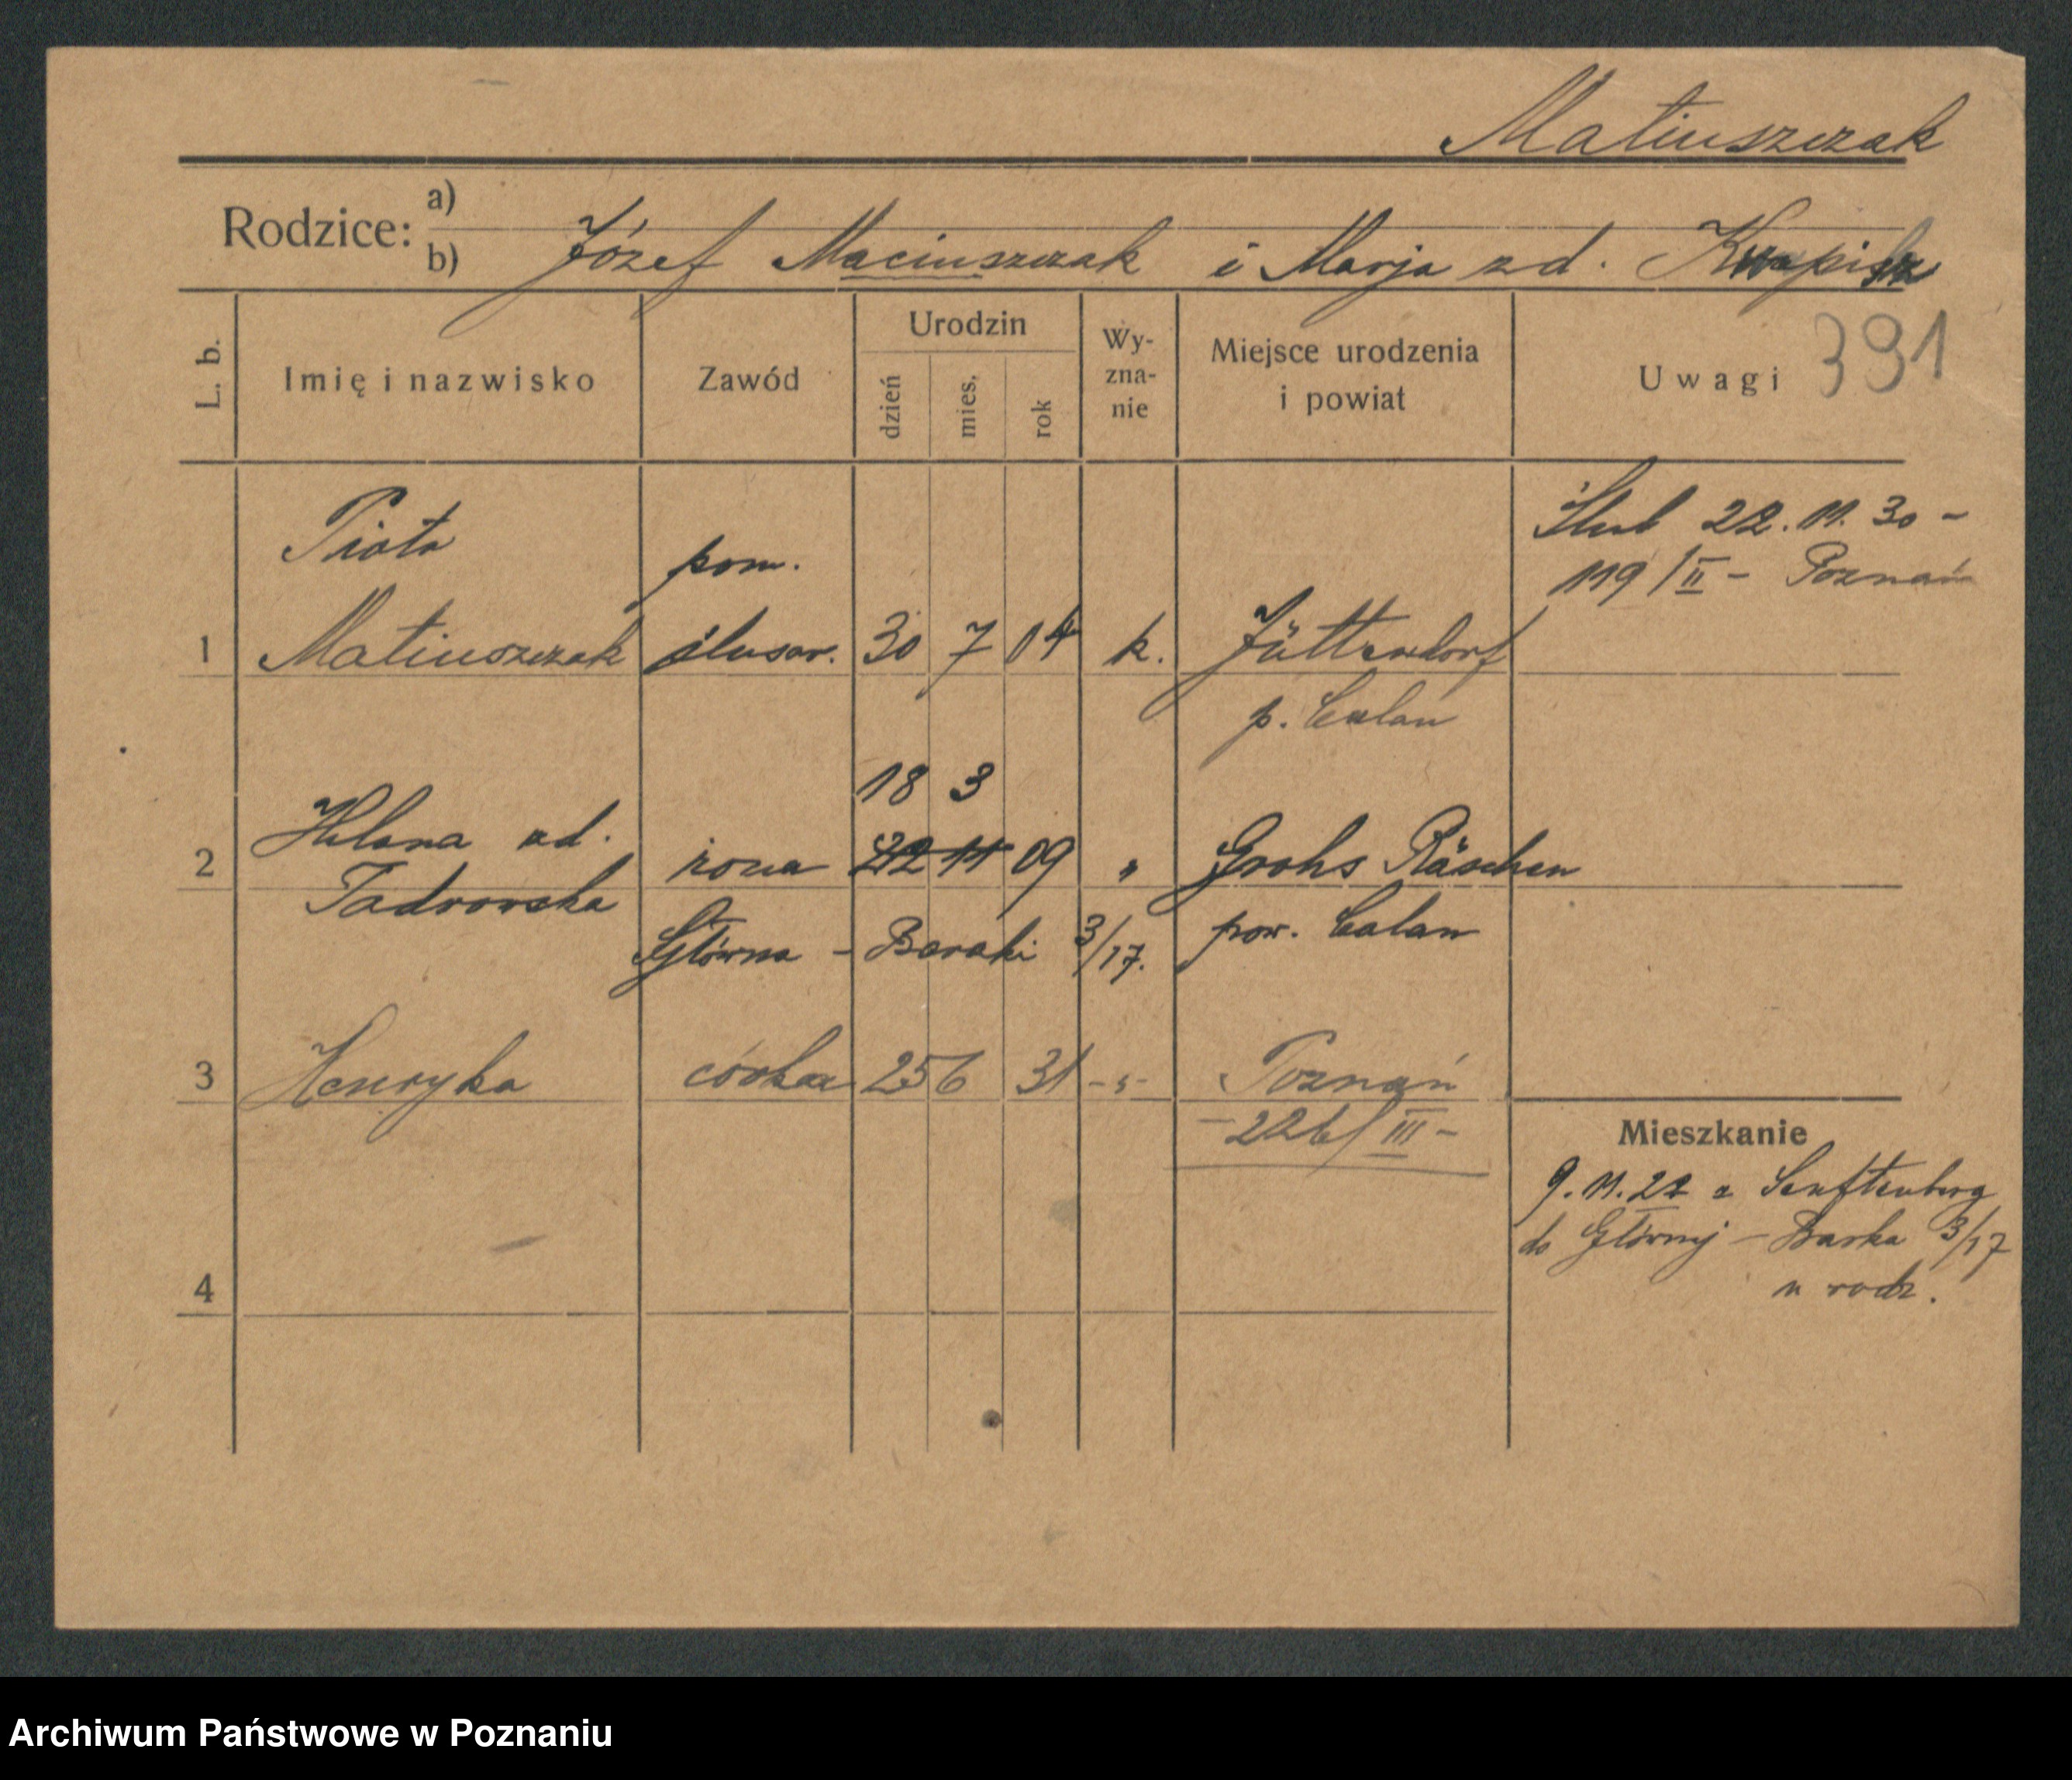 Matiuszczak
Rodzice: a)
b) Józef Maciuszczak i Marja zd.
L. b. Imię i nazwisko Zawód Urodzin dzień mies. rok Wy-zna-nie Miejsce urodzenia i powiat Uwagi 391
Ślub 22.11.30 -
119/II - Poznań
Piotr pom.
1 Matiuszczak ślusar. 30 7 04 k. Jüttendorf
p. Calau
18 3
2 Helena zd. żona 22 11 09 " Grohs Räschen
Tadrowska
Główna - Baraki 3/17. pow. Calau
3 Henryka córka 25 6 31 -"- Poznań
- 226/III -
Mieszkanie
9.11.22 z Senftenberg
do Główny - Barka 3/17
u rodz.
4
Archiwum Państwowe w Poznaniu